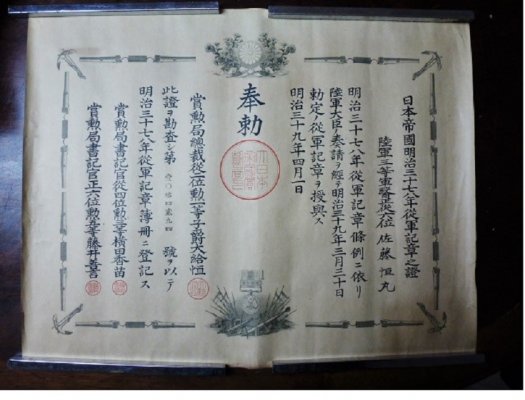 日本帝國明治三十七八年從軍記章之證
陸軍三等軍醫 佐藤恒丸
明治三十七八年從軍記章條例ニ依リ
陸軍大臣ノ奏請ヲ經テ明治三十九年三月三十日
勅定ノ從軍記章ヲ授與ス
明治三十九年四月一日
奉勅
賞勲局總裁從二位勲一等子爵大給恒
此證ヲ勘査シ第 號ヲ以テ
明治三十七八年從軍記章簿冊ニ登記ス
賞勲局書記官從四位勲三等横田香苗
賞勲局書記官正六位勲五等藤井善言